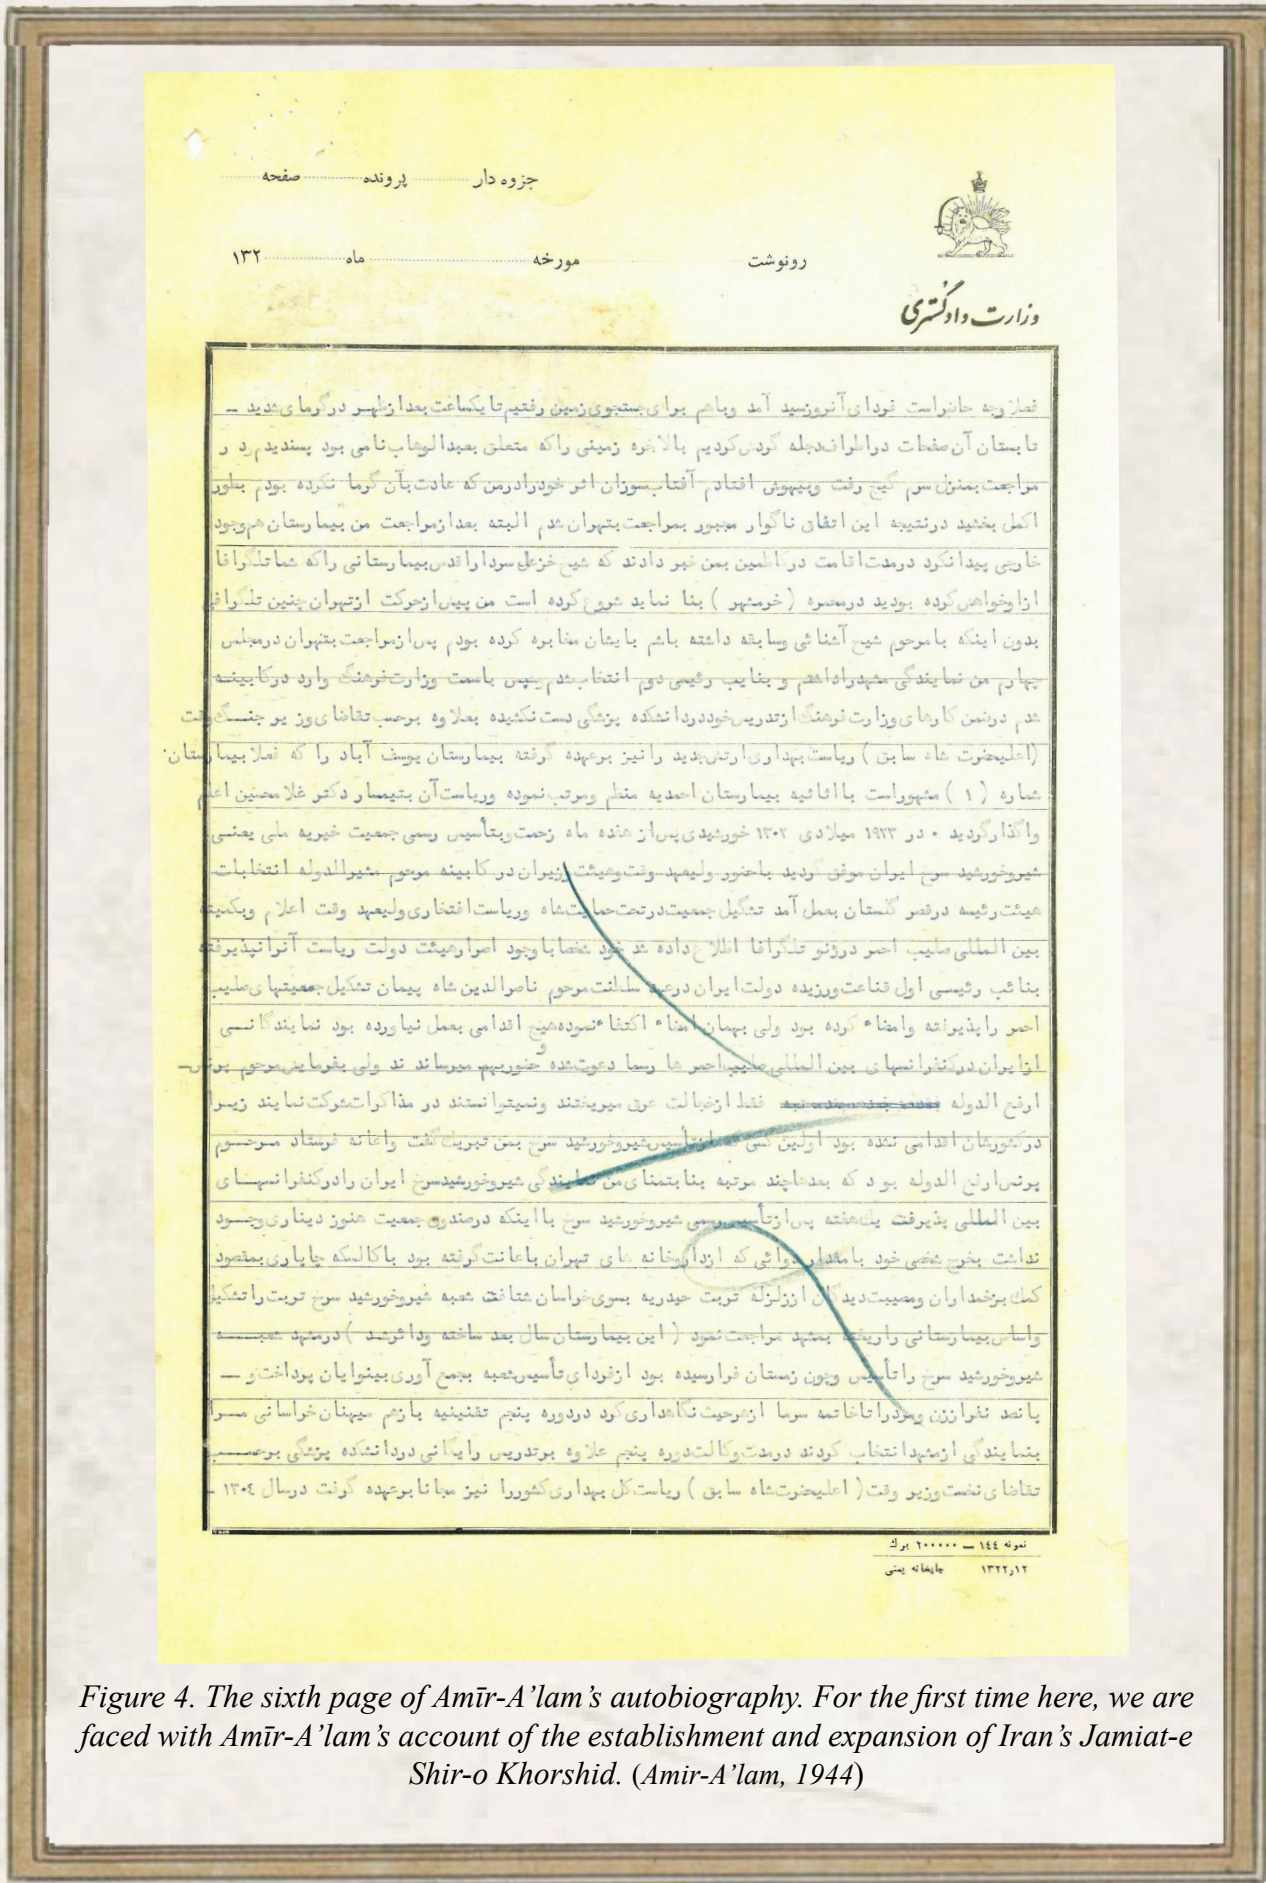 جزوه دار ............ پرونده ............ صفحه ............
رونوشت مورخه ............ ماه ............ ۱۳۲
وزارت دادگستری
فعلا وجه حاضراست فردای آنروزسید آمد وباهم برای جستجوی زمین رفتیم تا یکساعت بعد ازظهر درگرمای شدید —
تابستان آن صفحات دراطراف دجله گردش کردیم بالاخره زمینی راکه متعلق بعبدالوهاب نامی بود پسندیدم در
مراجعت بمنزل سرم گیج رفت وبیهوش افتادم آفتاب سوزان اثر خودرادرمن که عادت بآن گرما نکرده بودم بطور
اکمل بخشید درنتیجه این اتفاق ناگوار مجبور بمراجعت بتهران شدم البته بعد ازمراجعت من بیمارستان هم وجود
خارجی پیدا نکرد درمدت اقامت درکاظمین بمن خبر دادند که شیخ خزعل سردار اقدس بیمارستانی راکه شما تلگرافا
ازاوخواهش کرده بودید درمحمره ( خرمشهر ) بنا نماید شروع کرده است من پیش ازحرکت ازتهران چنین تلگرافی
بدون اینکه بامرحوم شیخ آشنائی وسابقه داشته باشم بایشان مخابره کرده بودم پس ازمراجعت بتهران درمجلس
چهارم من نمایندگی مشهدراداشتم و بنایب رئیسی دوم انتخاب شدم سپس باسمت وزارت فرهنگ وارد درکابینه
شدم درضمن کارهای وزارت فرهنگ ازتدریس خوددردانشکده پزشگی دست نکشیده بعلاوه برحسب تقاضای وزیر جنگ وقت
(اعلیحضرت شاه سابق ) ریاست بهداری ارتش جدید رانیز برعهده گرفته بیمارستان یوسف آباد را که فعلا بیمارستان
شماره ( ۱ ) مشهوراست بااثاثیه بیمارستان احمدیه منظم ومرتب نموده وریاست آن بتیمسار دکتر غلامحسین اعلم
واگذارگردید . در ۱۹۲۳ میلادی ۱۳۰۲ خورشیدی پس از هفده ماه زحمت وبتأسیس رسمی جمعیت خیریه ملی یعنی
شیروخورشید سرخ ایران موفق گردید باحضور ولیعهد وقت وهیئت وزیران در کابینه مرحوم مشیرالدوله انتخابات
هیئت رئیسه درقصر گلستان بعمل آمد تشگیل جمعیت درتحت حمایت شاه وریاست افتخاری ولیعهد وقت اعلام وبکمیته
بین المللی صلیب احمر درژنو تلگرافا اطلاع داده شد خود شخصا باوجود اصرارهیئت دولت ریاست آنرانپذیرفته
بنائب رئیسی اول قناعت ورزیده دولت ایران درعهد سلطنت مرحوم ناصرالدین شاه پیمان تشکیل جمعیتهای صلیب
احمر راپذیرفته وامضاء کرده بود ولی بهمان امضاء اکتفاء نموده هیچ اقدامی بعمل نیاورده بود نمایندگانسی
ازایران درکنفرانسهای بین المللی صلیب احمر ها رسما دعوت شده و حضوربهم میرساند ند ولی بفرمایش مرحوم پرنس—
ارفع الدوله فقط ازخجالت عرق میریختند ونمیتوانستند در مذاکرات شرکت نمایند زیرا
درکشورشان اقدامی نشده بود اولین کسی که ازتأسیس شیروخورشید سرخ بمن تبریک گفت واعانه فرستاد مرحوم
پرنس ارفع الدوله بود که بعدهاچند مرتبه بنابتمنای من نمایندگی شیروخورشید سرخ ایران رادرکنفرانسهای
بین المللی پذیرفت یک هفته پس ازتأسیس رسمی شیروخورشید سرخ بااینکه درصندوق جمعیت هنوز دیناری وجود
نداشت بخرج شخصی خود بامقدار دوائی که ازداروخانه های تهران باعانت گرفته بود باکالسکه چاپاری بمقصود
کمک بزخمداران ومصیبت دیدگان اززلزله تربت حیدریه بسوی خراسان شتافت شعبه شیروخورشید سرخ تربت راتشکیل
واساس بیمارستانی راریخت بمشهد مراجعت نمود ( این بیمارستان سال بعد ساخته ودائرشد ) درمشهد شعبه
شیروخورشید سرخ راتأسیس وچون زمستان فرارسیده بود ازفردای تأسیس شعبه بجمع آوری بینوایان پرداخت و —
پانصد نفرازن ومردراتاخاتمه سرما ازهرحیث نگاهداری کرد دردوره پنجم تقنینیه بازهم میهنان خراسانی مرا
بنمایندگی ازمشهد انتخاب کردند درمدت وکالت دوره پنجم علاوه برتدریس رایگانی دردانشکده پزشگی برحسب
تقاضای نخست وزیر وقت ( اعلیحضرت شاه سابق ) ریاست کل بهداری کشوررا نیز مجانابرعهده گرفت درسال ۱۳۰٤ —
نمونه ۱٤٤ — ۲۰۰۰۰۰ برگ
۱۳۲۲٫۱۲ چاپخانه یمنی
Figure 4. The sixth page of Amīr-A’lam’s autobiography. For the first time here, we are
faced with Amīr-A’lam’s account of the establishment and expansion of Iran’s Jamiat-e
Shir-o Khorshid. (Amir-A’lam, 1944)